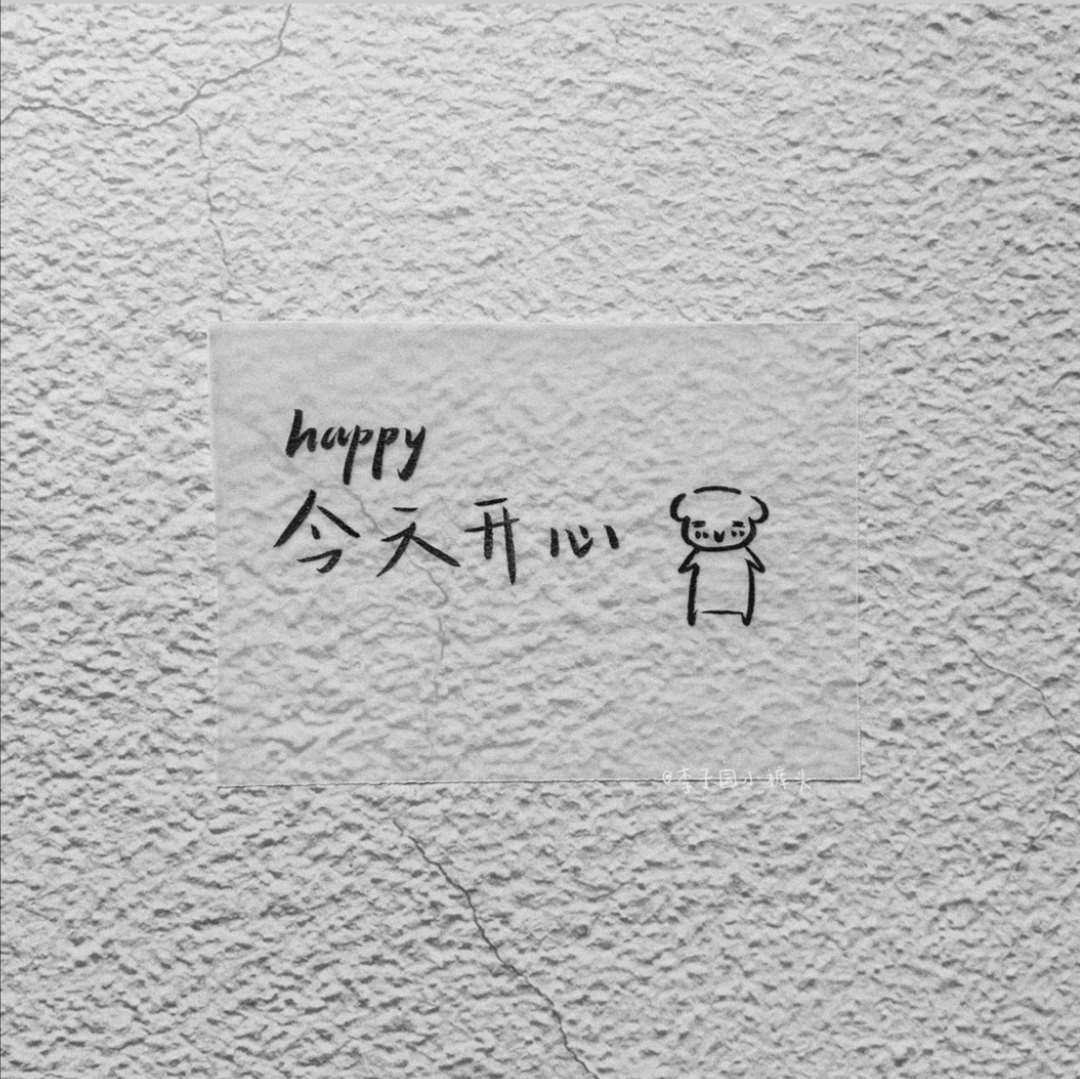 happy
今天开心
@李子园小罐头